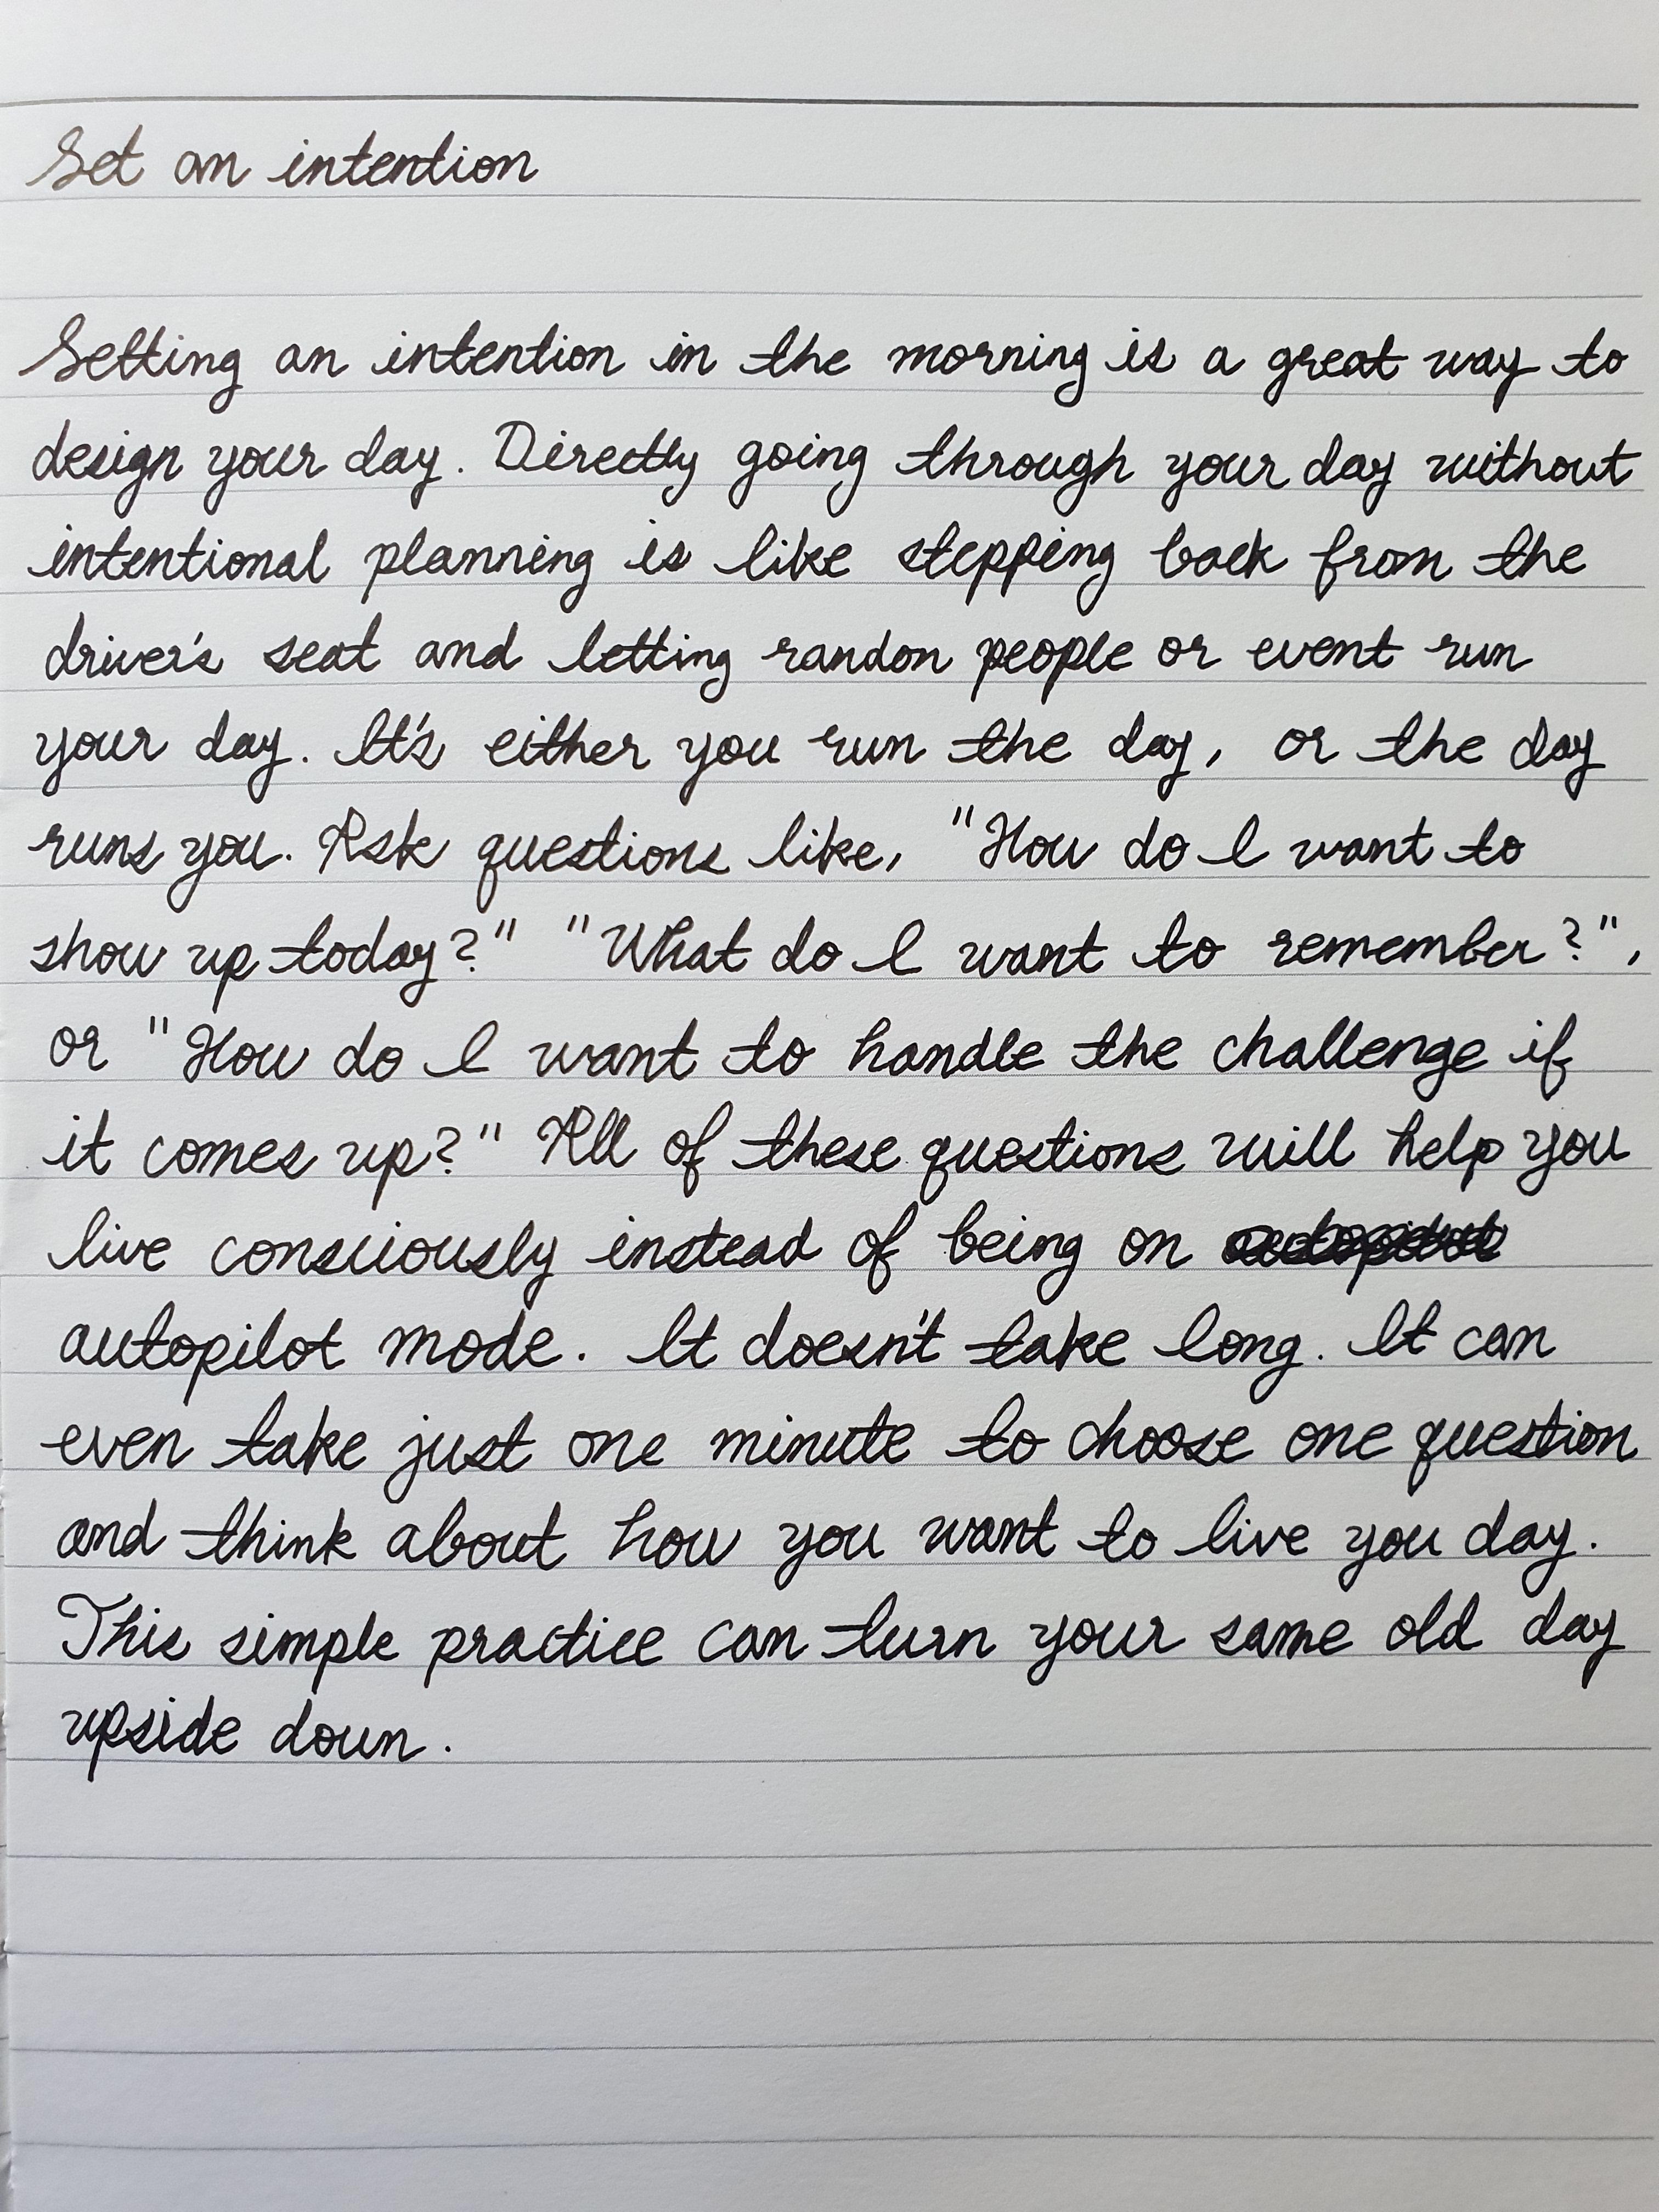 Set an intention
Setting an intention in the morning is a great way to
design your day. Directly going through your day without
intentional planning is like stepping back from the
driver's seat and letting randon people or event run
your day. It's either you run the day, or the day
runs you. Ask questions like, "How do I want to
show up today?" "What do I want to remember?",
or "How do I want to handle the challenge if
it comes up?" All of these questions will help you
live consciously instead of being on
autopilot mode. It doesn't take long. It can
even take just one minute to choose one question
and think about how you want to live you day.
This simple practice can turn your same old day
upside down.